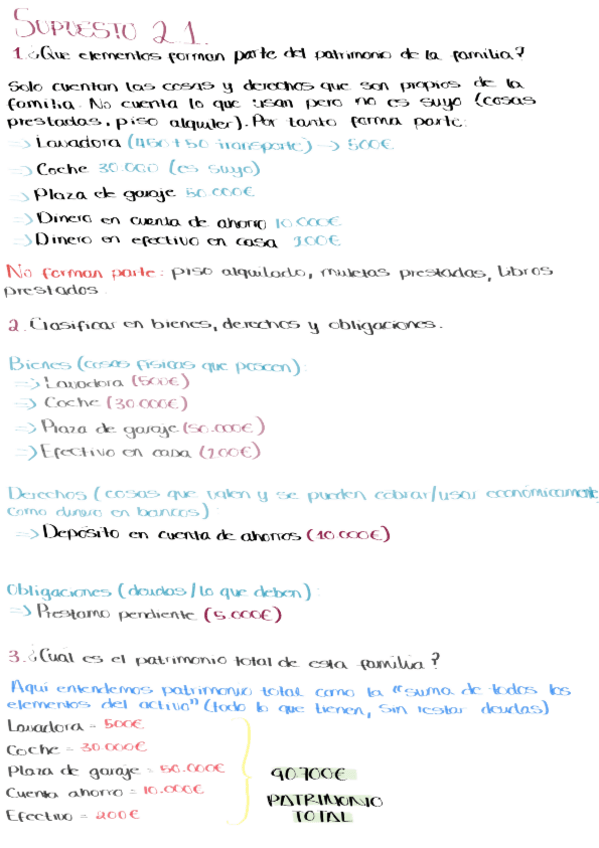 SUPUESTO 2.1.
1. ¿Que elementos forman parte del patrimonio de la familia?
Solo cuentan las cosas y derechos que son propios de la
familia. No cuenta lo que usan pero no es suyo (cosas
prestadas, piso alquiler). Por tanto forma parte:
=> Lavadora (450+50 transporte) -> 500€
=> Coche 30.000 (es suyo)
=> Plaza de garaje 50.000€
=> Dinero en cuenta de ahorro 10.000€
=> Dinero en efectivo en casa 200€
No forman parte: piso alquilado, muletas prestadas, libros
prestados
2. Clasificar en bienes, derechos y obligaciones.
Bienes (cosas físicas que poseen):
=> Lavadora (500€)
=> Coche (30.000€)
=> Plaza de garaje (50.000€)
=> Efectivo en casa (200€)
Derechos (cosas que valen y se pueden cobrar/usar económicamente,
como dinero en bancos)
=> Depósito en cuenta de ahorros (10.000€)
Obligaciones (deudas / lo que deben)
=> Prestamo pendiente (5.000€)
3. ¿Cual es el patrimonio total de esta familia?
Aquí entendemos patrimonio total como la "suma de todos los
elementos del activo" (todo lo que tienen, sin restar deudas)
Lavadora = 500€
Coche = 30.000€
Plaza de garaje = 50.000€
Cuenta ahorro = 10.000€
Efectivo = 200€
90.700€
PATRIMONIO
TOTAL